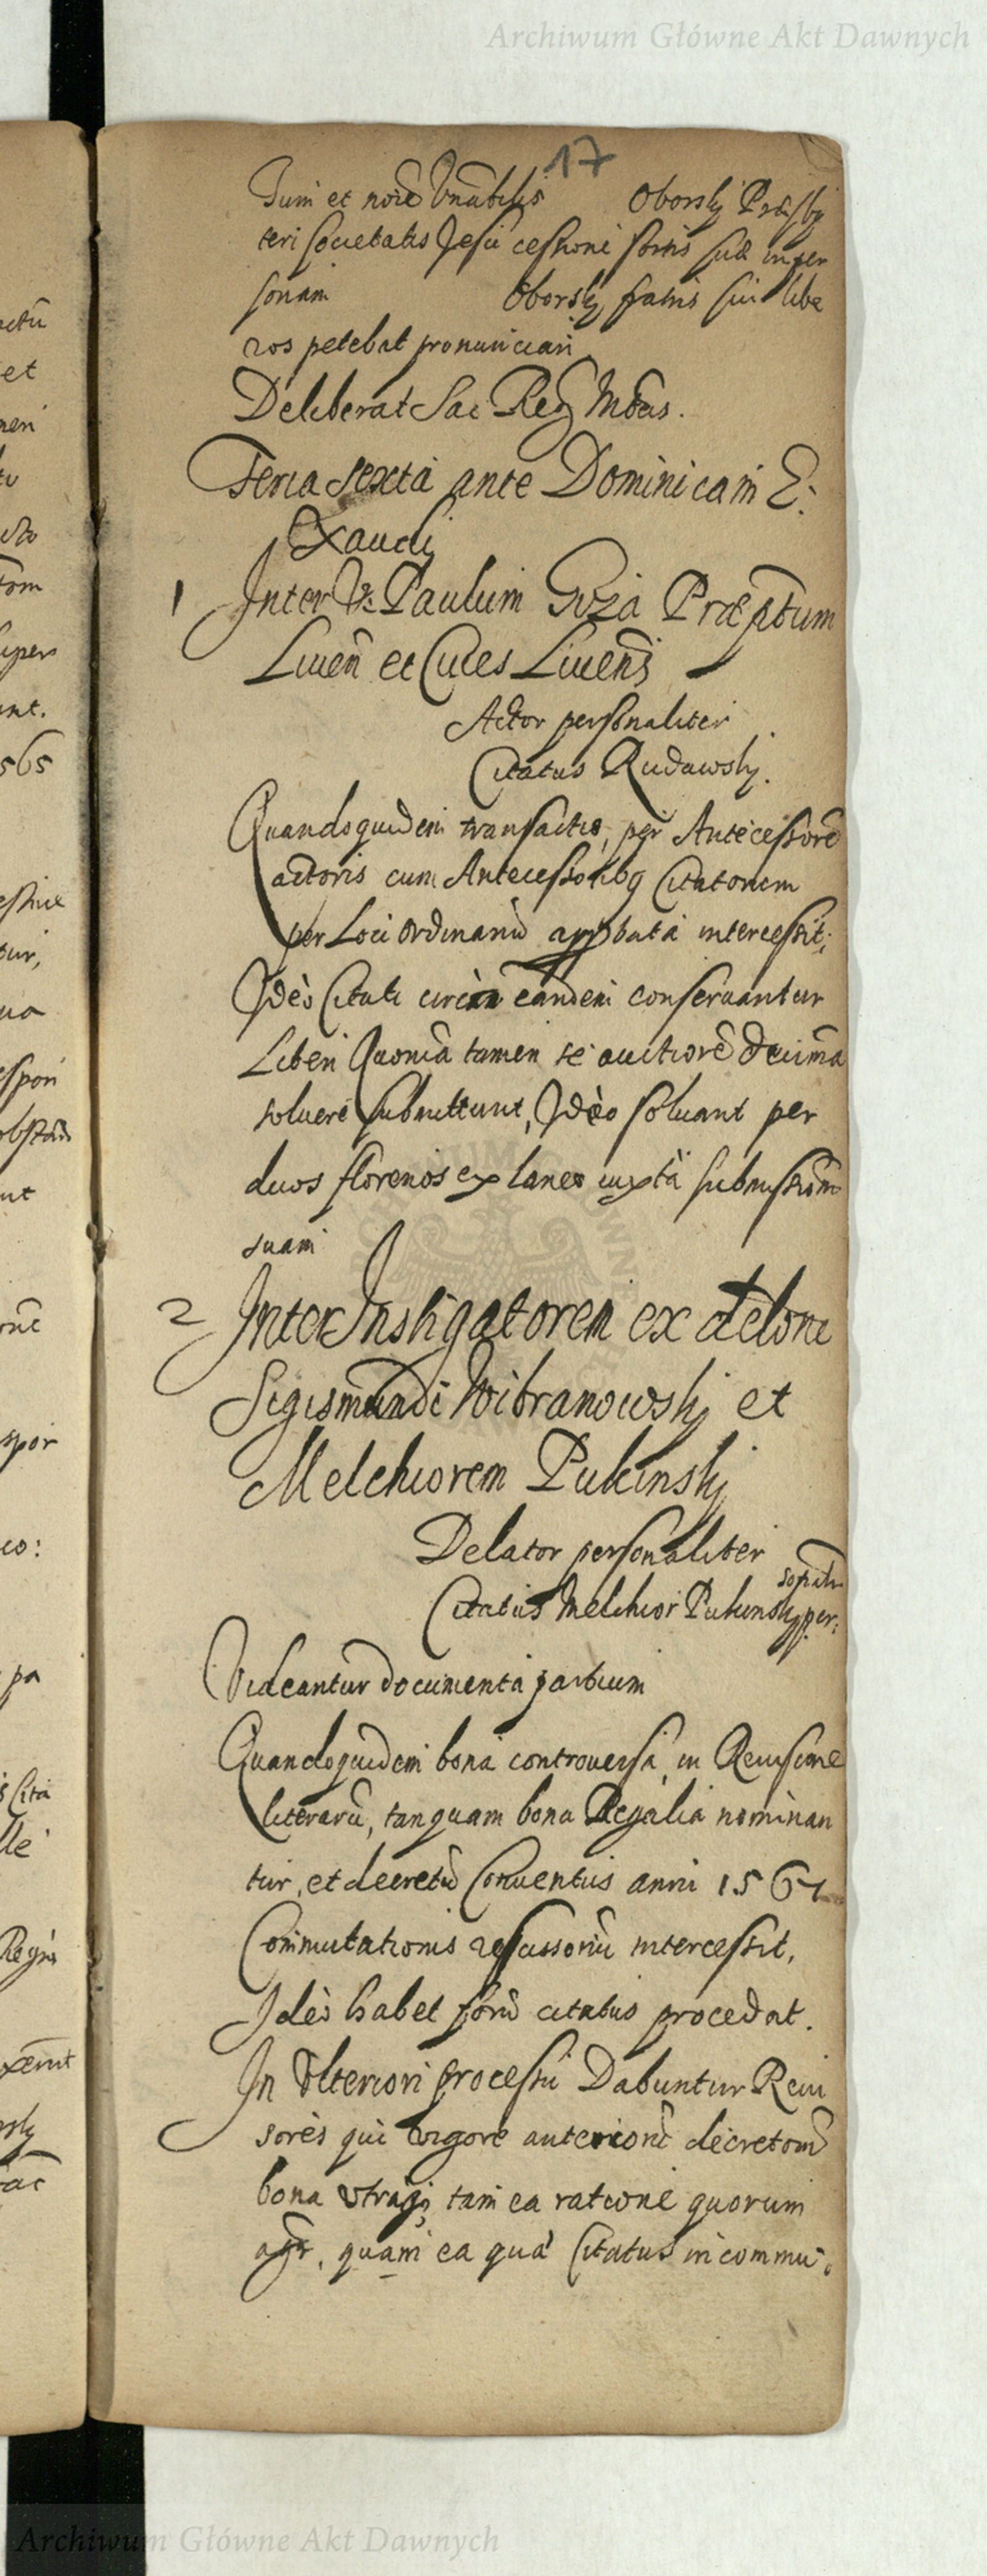 Archiwum Główne Akt Dawnych
17
Tum et noĩe Vnãbilis Oborskij Præsby
teri Societatis Jesu cessione sortis suæ in per
sonam Oborskij fratris sui libe
ros petebat pronunciari
Deliberat Sac Reg Mtas.
Feria sexta ante Dominicam E:
Exaudi
1 Inter V: Paulum Guza Præptum
Liuen et Ciues Liuens
Actor personaliter
Citatus Rudawskj.
Quandoquidem transactio, per Antecessorẽ
actoris cum Antecessoribq Citatorum
per Loci ordinariũ approbata intercessit;
Ideò Citati circa eandem conseruantur
Liberi Quoniã tamen se auctiorẽ decimã
soluere submittunt, Ideo soluant per
duos florenos ex laneo iuxta submissionẽ
suam
2 Inter Instigatorem ex delone
Sigismundi Wibranowskj et
Melchiorem Pukinskj
Delator personaliter
Citatus Melchior Pukinskj per:
Videantur documenta partium
Quandoquidem bona controuersa, in Reuisione
literarũ, tanquam bona Regalia nominan
tur, et decretũ Conuentus anni 1567
Commutationis rescissoriũ intercessit,
Ideò habet forũ citatus procedat.
In Vlteriori processu Dabuntur Reui
sores qui vigore anteriorũ decretorũ
bona vtraqz tam ea ratione quorum
agr, quam ea qua Citatus in commu
ctũ
et
neri
super
int.
565
tur,
espon
obstan
nt
spor
co:
pa
s Cita
lle
Regia
Archiwum Główne Akt Dawnych